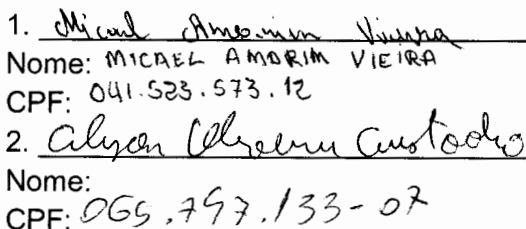 1. Micael Amorim Vieira
Nome: MICAEL AMORIM VIEIRA
CPF: 041.523.573.12
2. Custodio
Nome:
CPF: 065.797.133-07